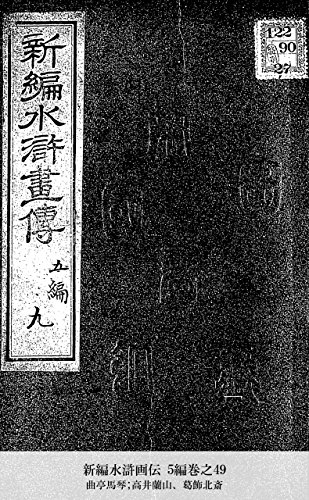 新編水滸畫傳
五編
九
122
90
27
新編水滸画伝 5編巻之49
曲亭馬琴;高井蘭山、葛飾北斎